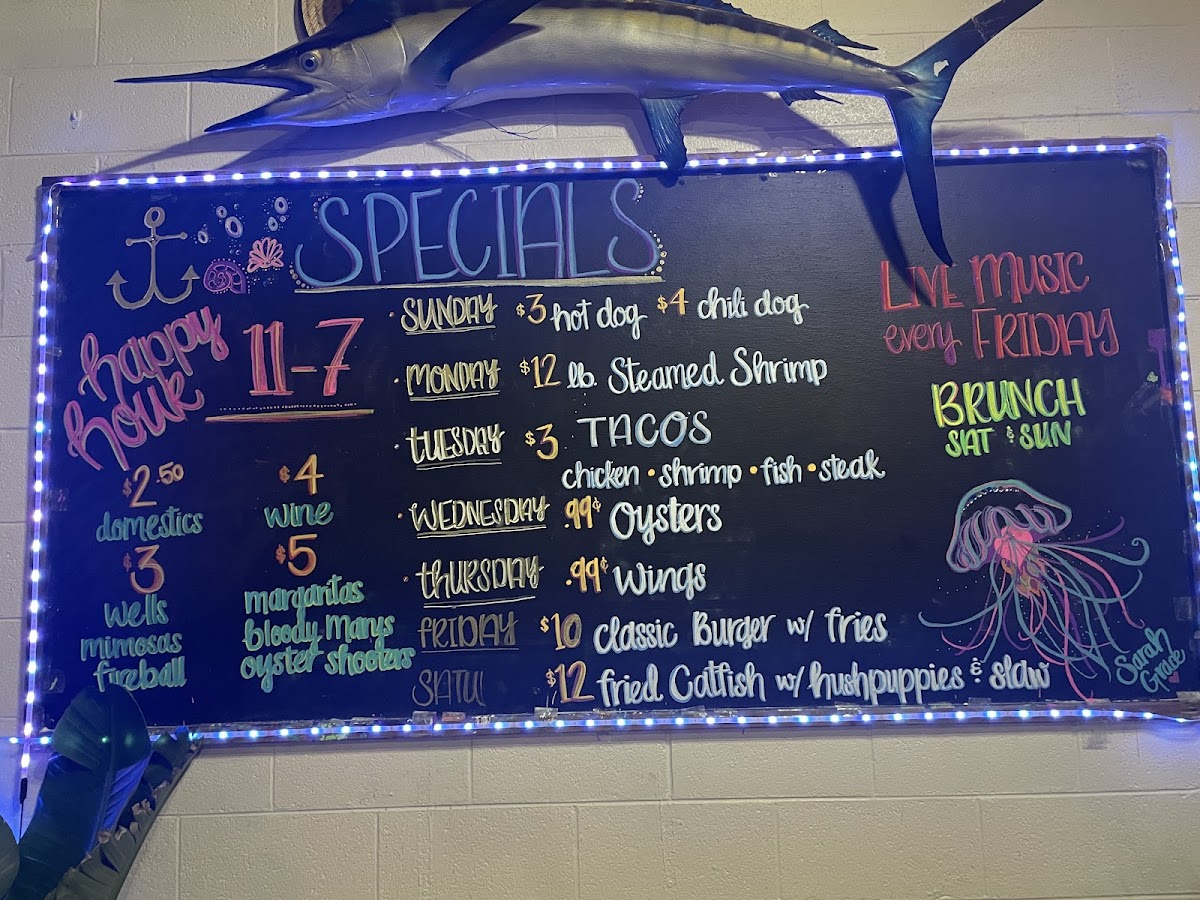 SPECIALS
happy hour
11-7
$2.50
domestics
$3
wells
mimosas
fireball
$4
wine
$5
margaritas
bloody Marys
oyster shooters
SUNDAY $3 hot dog $4 chili dog
MONDAY $12 lb. Steamed Shrimp
TUESDAY $3 TACOS
chicken • shrimp • fish • steak
WEDNESDAY .99¢ Oysters
THURSDAY .99¢ Wings
FRIDAY $10 Classic Burger w/ fries
SATU $12 fried Catfish w/ hushpuppies & slaw
LIVE MUSIC
every FRIDAY
BRUNCH
SAT & SUN
Sarah
Grace